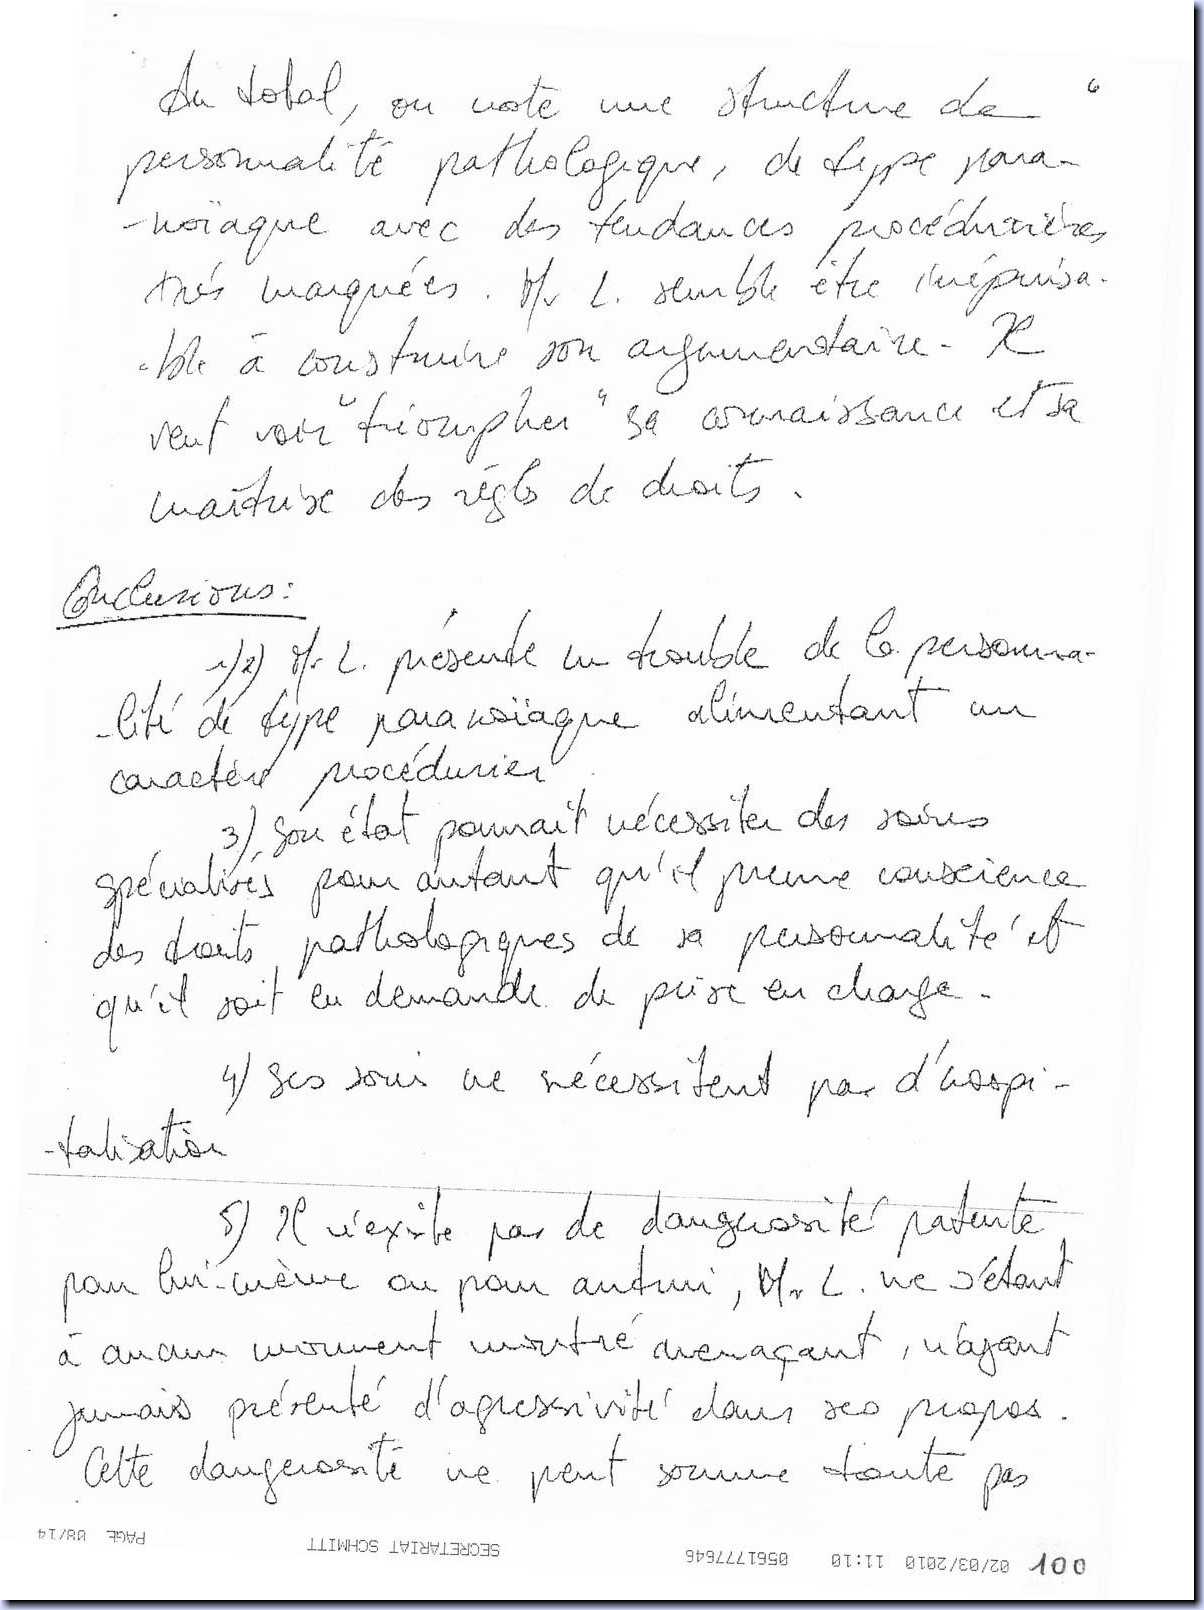 6
Au total, on note une structure de
personnalité pathologique, de type para-
-noïaque avec des tendances procédurières
très marquées. Mr L. semble être inépuisa-
-ble à construire son argumentaire. Il
veut voir "triompher" sa connaissance et sa
maîtrise des règles de droits.
Conclusions :
1)2) Mr L. présente un trouble de la personna-
-lité de type paranoïaque alimentant un
caractère procédurier
3) Son état pourrait nécessiter des soins
spécialisés pour autant qu'il prenne conscience
des traits pathologiques de sa personnalité et
qu'il soit en demande de prise en charge.
4) Ses soins ne nécessitent pas d'hospi-
-talisation
5) Il n'existe pas de dangerosité patente
pour lui-même ou pour autrui, Mr L. ne s'étant
à aucun moment montré menaçant, n'ayant
jamais présenté d'agressivité dans ses propos.
Cette dangerosité ne peut somme toute pas
02/03/2010 11:10 0561777646 SECRETARIAT SCHMITT PAGE 08/14
100